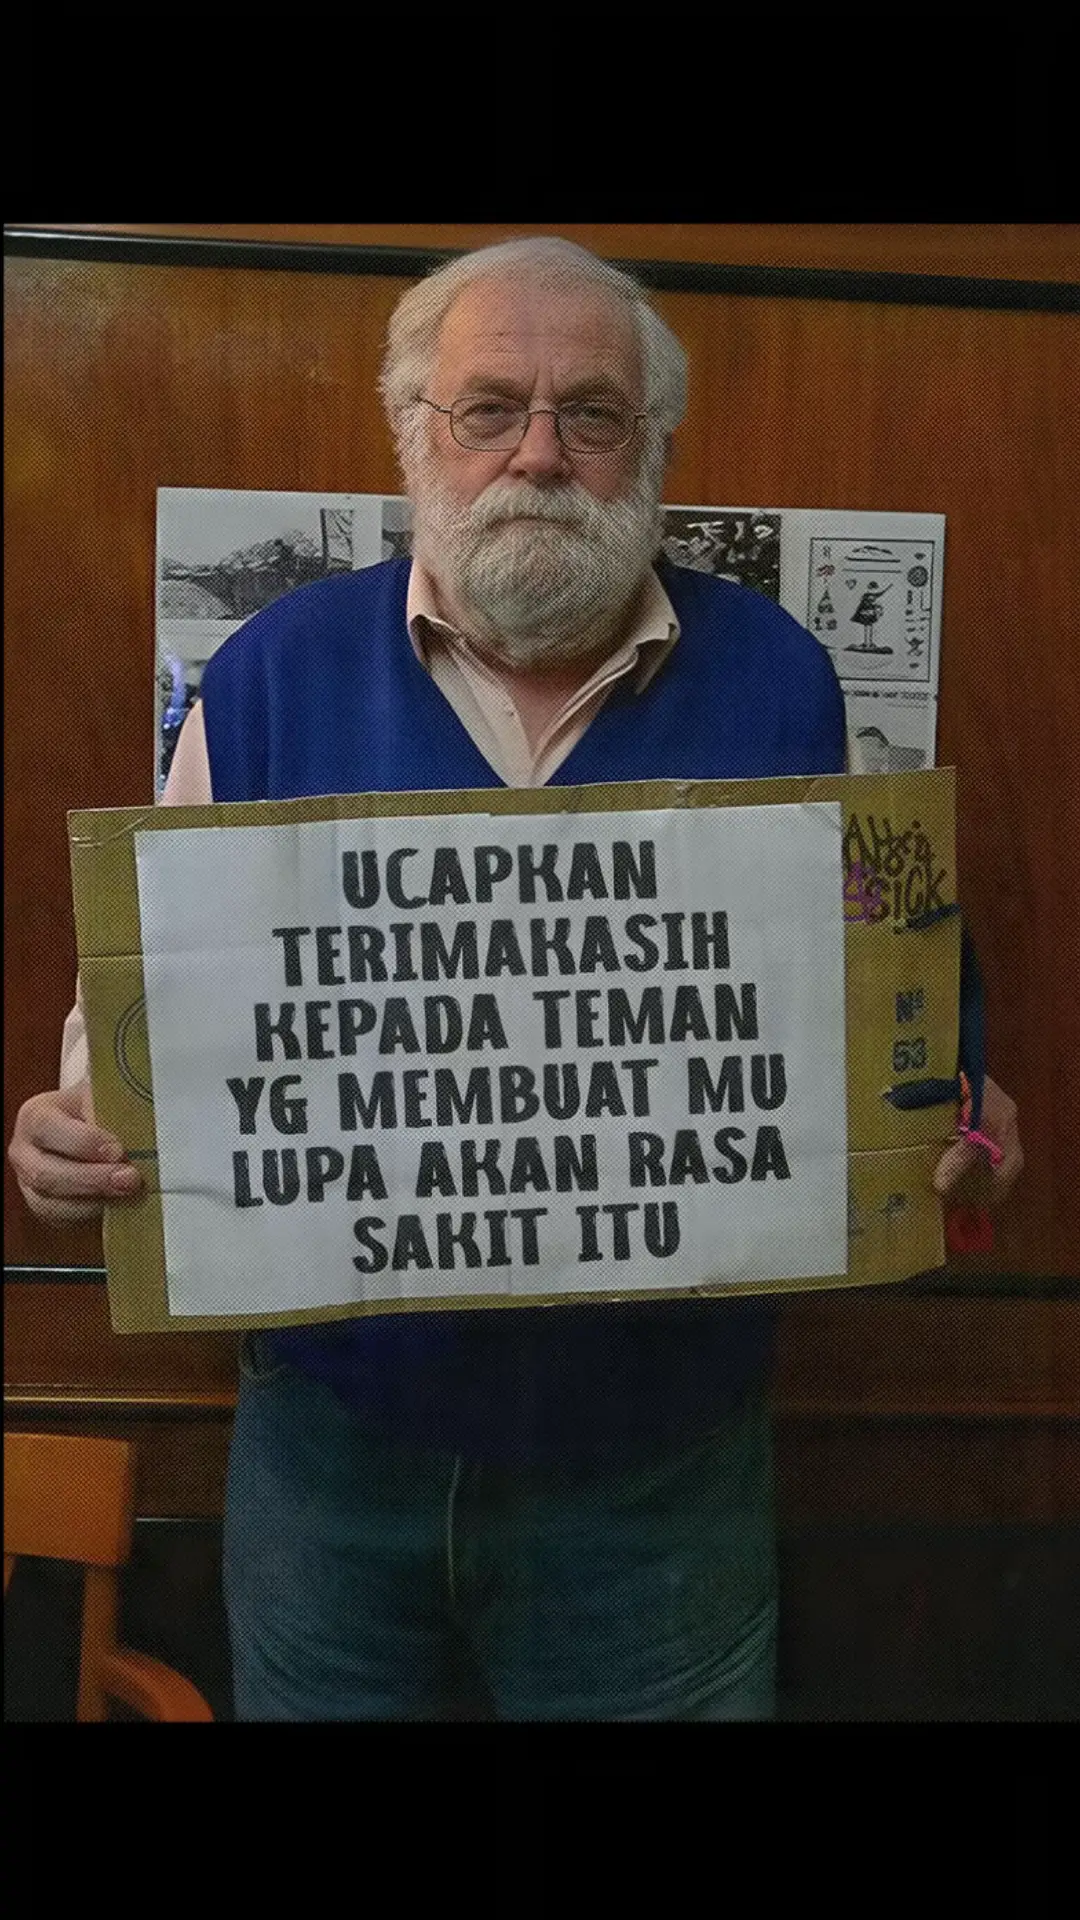 UCAPKAN
TERIMAKASIH
KEPADA TEMAN
YG MEMBUAT MU
LUPA AKAN RASA
SAKIT ITU
SICK
Nº
53